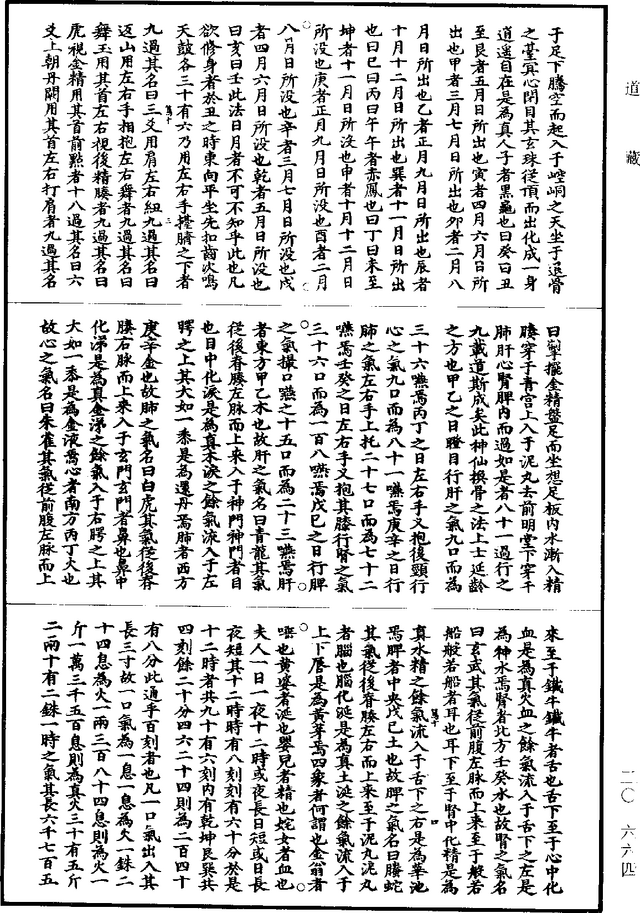 道藏
子足下騰空而起入于崆峒之天坐于退骨
之臺冥心閉目其玄珠從頂而出化成一身
逍遙自在是為真人子者黑龜也曰癸曰丑
至艮者五月日所出也寅者四月六月日所
出也甲者三月七月日所出也卯者二月八
月日所出也乙者正月九月日所出也辰者
十月十二月日所出也巽者十一月日所出
也曰巳曰丙曰午午者赤鳳也曰丁曰未至
坤者十一月日所没也申者十月十二月日
所没也庚者正月九月日所没也酉者二月
八月日所没也辛者三月七月日所没也戌
者四月六月日所没也乾者五月日所没也
曰亥曰壬此法日月者不可不知乎此也凡
欲修身者於丑之時東向平坐先扣齒次鳴
天鼓各三十有六乃用左右手搼臍之下者
九過其名曰三爻用肩左右紐九過其名曰
返山用左右手相抱左右舞者九過其名曰
舞玉用其首左右視後精膝者九過其名曰
虎視金精用其首前點者十八過其名曰六
爻上朝丹闕用其首左右打肩者九過其名
曰掣擺金精盤足而坐想足板內水漸入精
膝穿于青宮上入于泥丸去前明堂下穿于
肺肝心腎脾內而過如是者八十一過行之
九載道斯成矣此神仙換骨之法上士延齡
之方也甲乙之日瞪目行肝之氣九口而為
三十六嚥焉丙丁之日左右手叉抱後頸行
心之氣九口而為八十一嚥焉庚辛之日行
肺之氣左右手上托二十七口而為七十二
嚥焉壬癸之日左右手叉抱其膝行腎之氣
三十六口而為一百八嚥焉戊巳之日行脾
之氣撮口嚥之十五口而為二十三嚥焉肝
者東方甲乙木也故肝之氣名曰青龍其氣
從後脊膝左脉而上來入于神門神門者目
也目中化淚是為真木淚之餘氣流入于左
腭之上其大如一黍是為還丹焉肺者西方
庚辛金也故肺之氣名曰白虎其氣從後脊
膝右脉而上來入于玄門玄門者鼻也鼻中
化涕是為真金涕之餘氣入于右腭之上其
大如一黍是為金液焉心者南方丙丁火也
故心之氣名曰朱雀其氣從前腹左脉而上
來至于鐵牛鐵牛者舌也舌下至于心中化
血是為真火血之餘氣流入于舌下之左是
為神水焉腎者北方壬癸水也故腎之氣名
曰玄武其氣從前腹左脉而上來至于般若
船般若船者耳也耳下至于腎中化精是為
真水精之餘氣流入于舌下之右是為華池
焉脾者中央戊己土也故脾之氣名曰螣蛇
其氣從後脊膝左右而上來至于泥丸泥丸
者腦也腦化涎是為真土涎之餘氣流入于
上下唇是為黃芽焉四象者何謂也金翁者
嚥也黃婆者涎也嬰兒者精也姹女者血也
夫人一日一夜十二時或夜長日短或日長
夜短其十二時時有八刻刻有六十分於是
十二時者共九十有六刻內有乾坤艮巽共
四刻餘二十分四六二十四則為二百四十
有八分此通乎百刻者也凡一口氣出入其
長三寸故一口氣為一息一息為火一銖二
十四息為火一兩三百八十四息則為火一
斤一萬三千五百息則為真火三十有五斤
二兩十有二銖一時之氣其長六千七百五
二〇
六六四